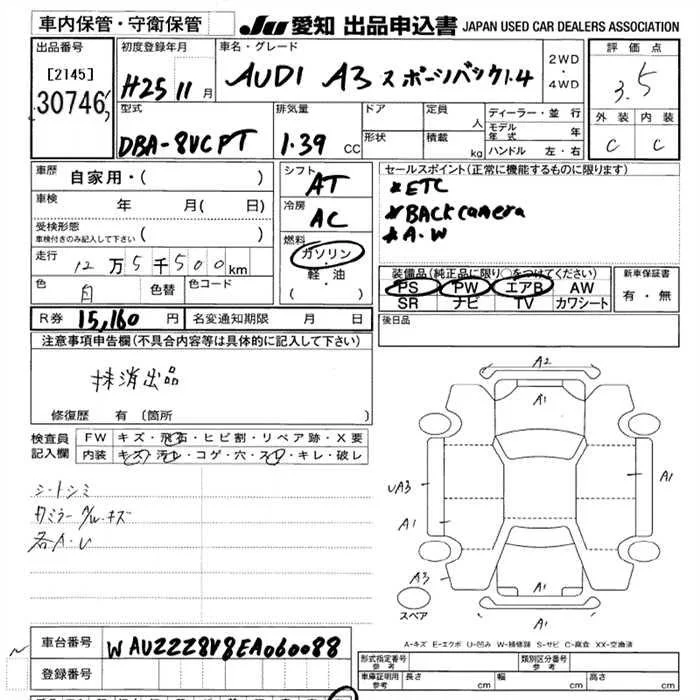 車内保管・守衛保管 JU 愛知 出品申込書 JAPAN USED CAR DEALERS ASSOCIATION
出品番号 初度登録年月 車名・グレード 2WD・4WD 評価点
[2145] 30746 H25 11月 AUDI A3 スポーツバック1.4 3.5
型式 排気量 ドア 定員 人 ディーラー・並行
外装 内装
DBA-8VCPT 1.39 CC 形状 積載 kg モデル年式 年
ハンドル 左・右 C C
車歴 自家用・( ) シフト AT セールスポイント(正常に機能するものに限ります)
*ETC
車検 年 月( 日) 冷房 AC *BACK camera
受検形態 車検付きのみ記入して下さい ( ) *A.W
燃料 ガソリン・軽・油 ( )
走行 12万5千500km 装備品(純正品に限り○をつけてください) 新車保証書
色 白 色替 色コード PS PW エアB AW 有・無
SR ナビ TV カワシート
R券 15,160円 名変通知期限 月 日 後日品
注意事項申告欄(不具合内容等は具体的に記入して下さい)
抹消出品
修復歴 有(箇所 )
検査員記入欄 FW キズ・飛石・ヒビ割・リペア跡・X要
内装 キズ・汚レ・コゲ・穴・スレ・キレ・破レ
シートシミ
各A・U
A2
A1
UA3
A1
A1
A3
A1
A1
スペア
A-キズ E-エクボ U-凹み W-補修跡 S-サビ C-腐食 XX-交換済
車台番号 WAUZZZ8V8EA060088
登録番号
形式指定番号 参考 類別区分番号 参考
車庫証明用 参考 長さ cm 幅 cm 高さ cm